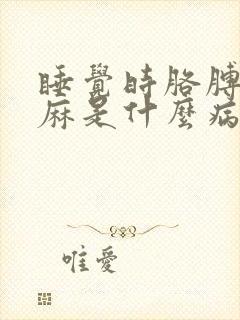 睡覺時胳膊
麻是什麼病
唯愛